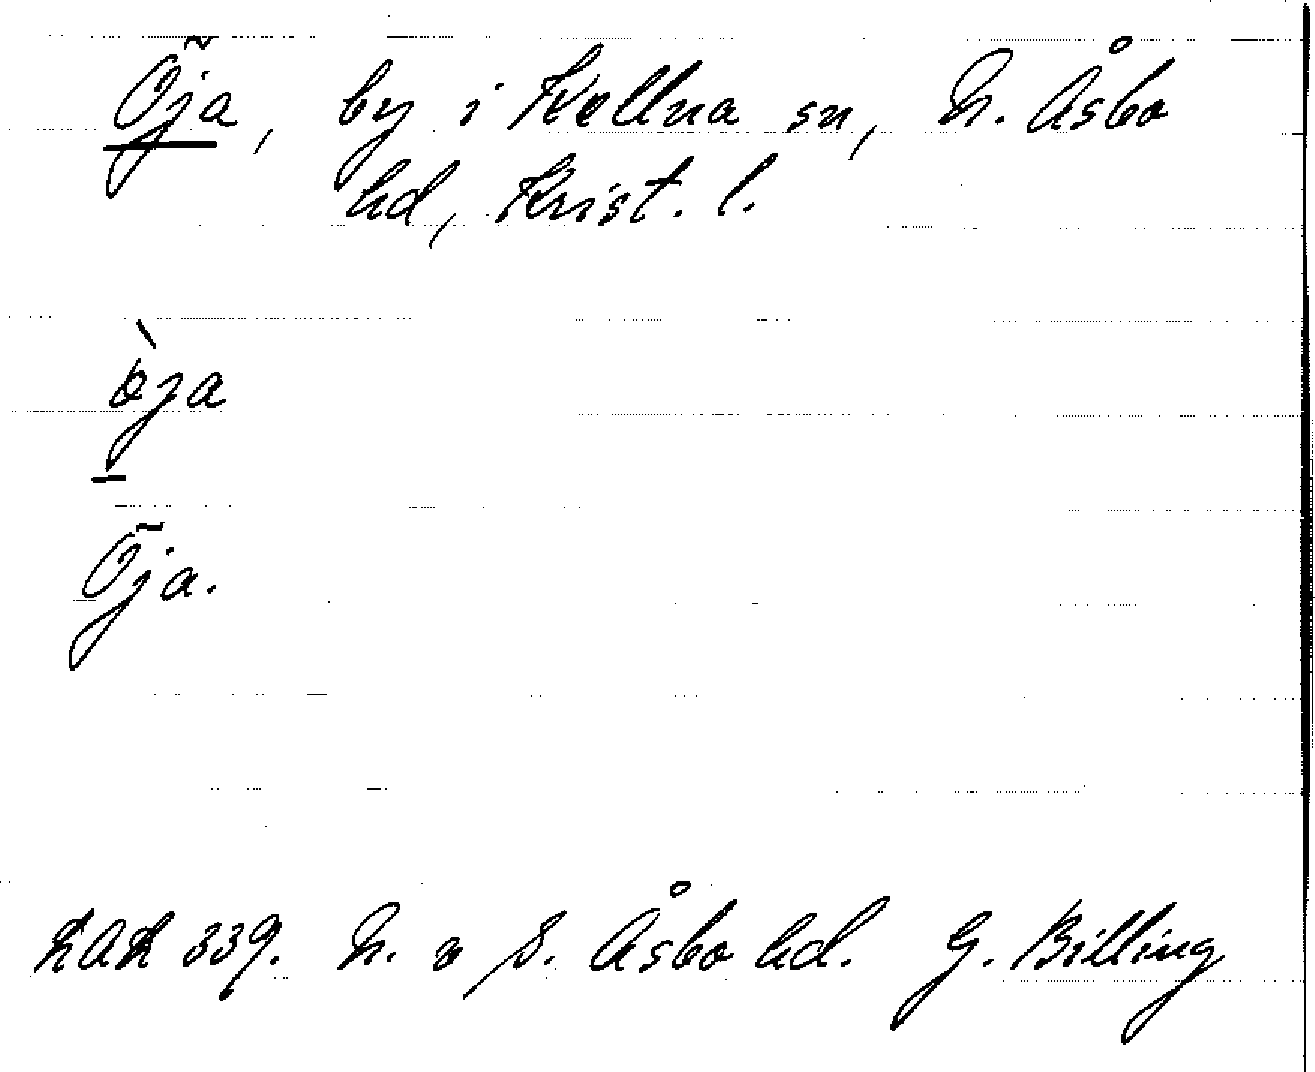 Öja, by i Källna sn, N. Åsbo
hd, Krist. l.
ö̀ja
Öja.
339. N. o S. Åsbo hd. G. Billing